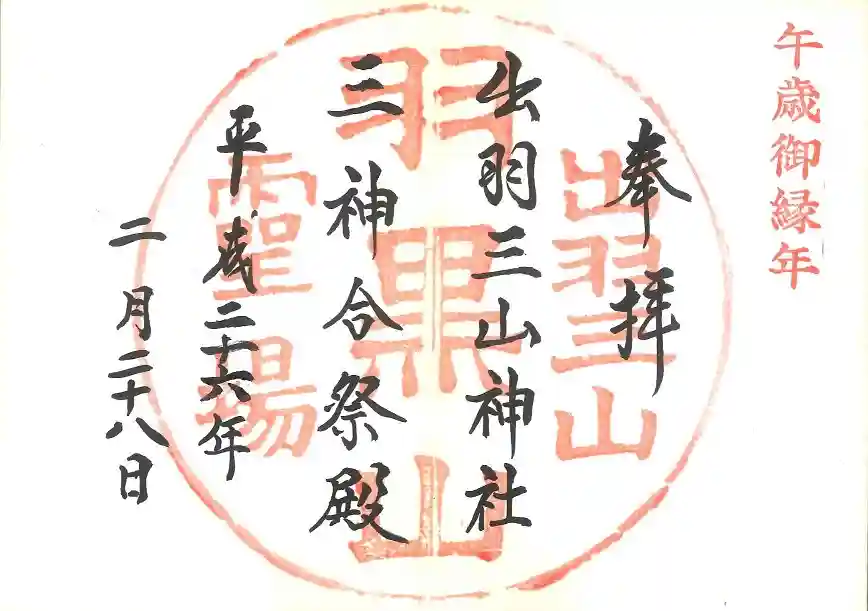 午歳御縁年
奉拝
出羽三山神社
三神合祭殿
平成二十六年
二月二十八日
出羽三山
羽黒山
霊場